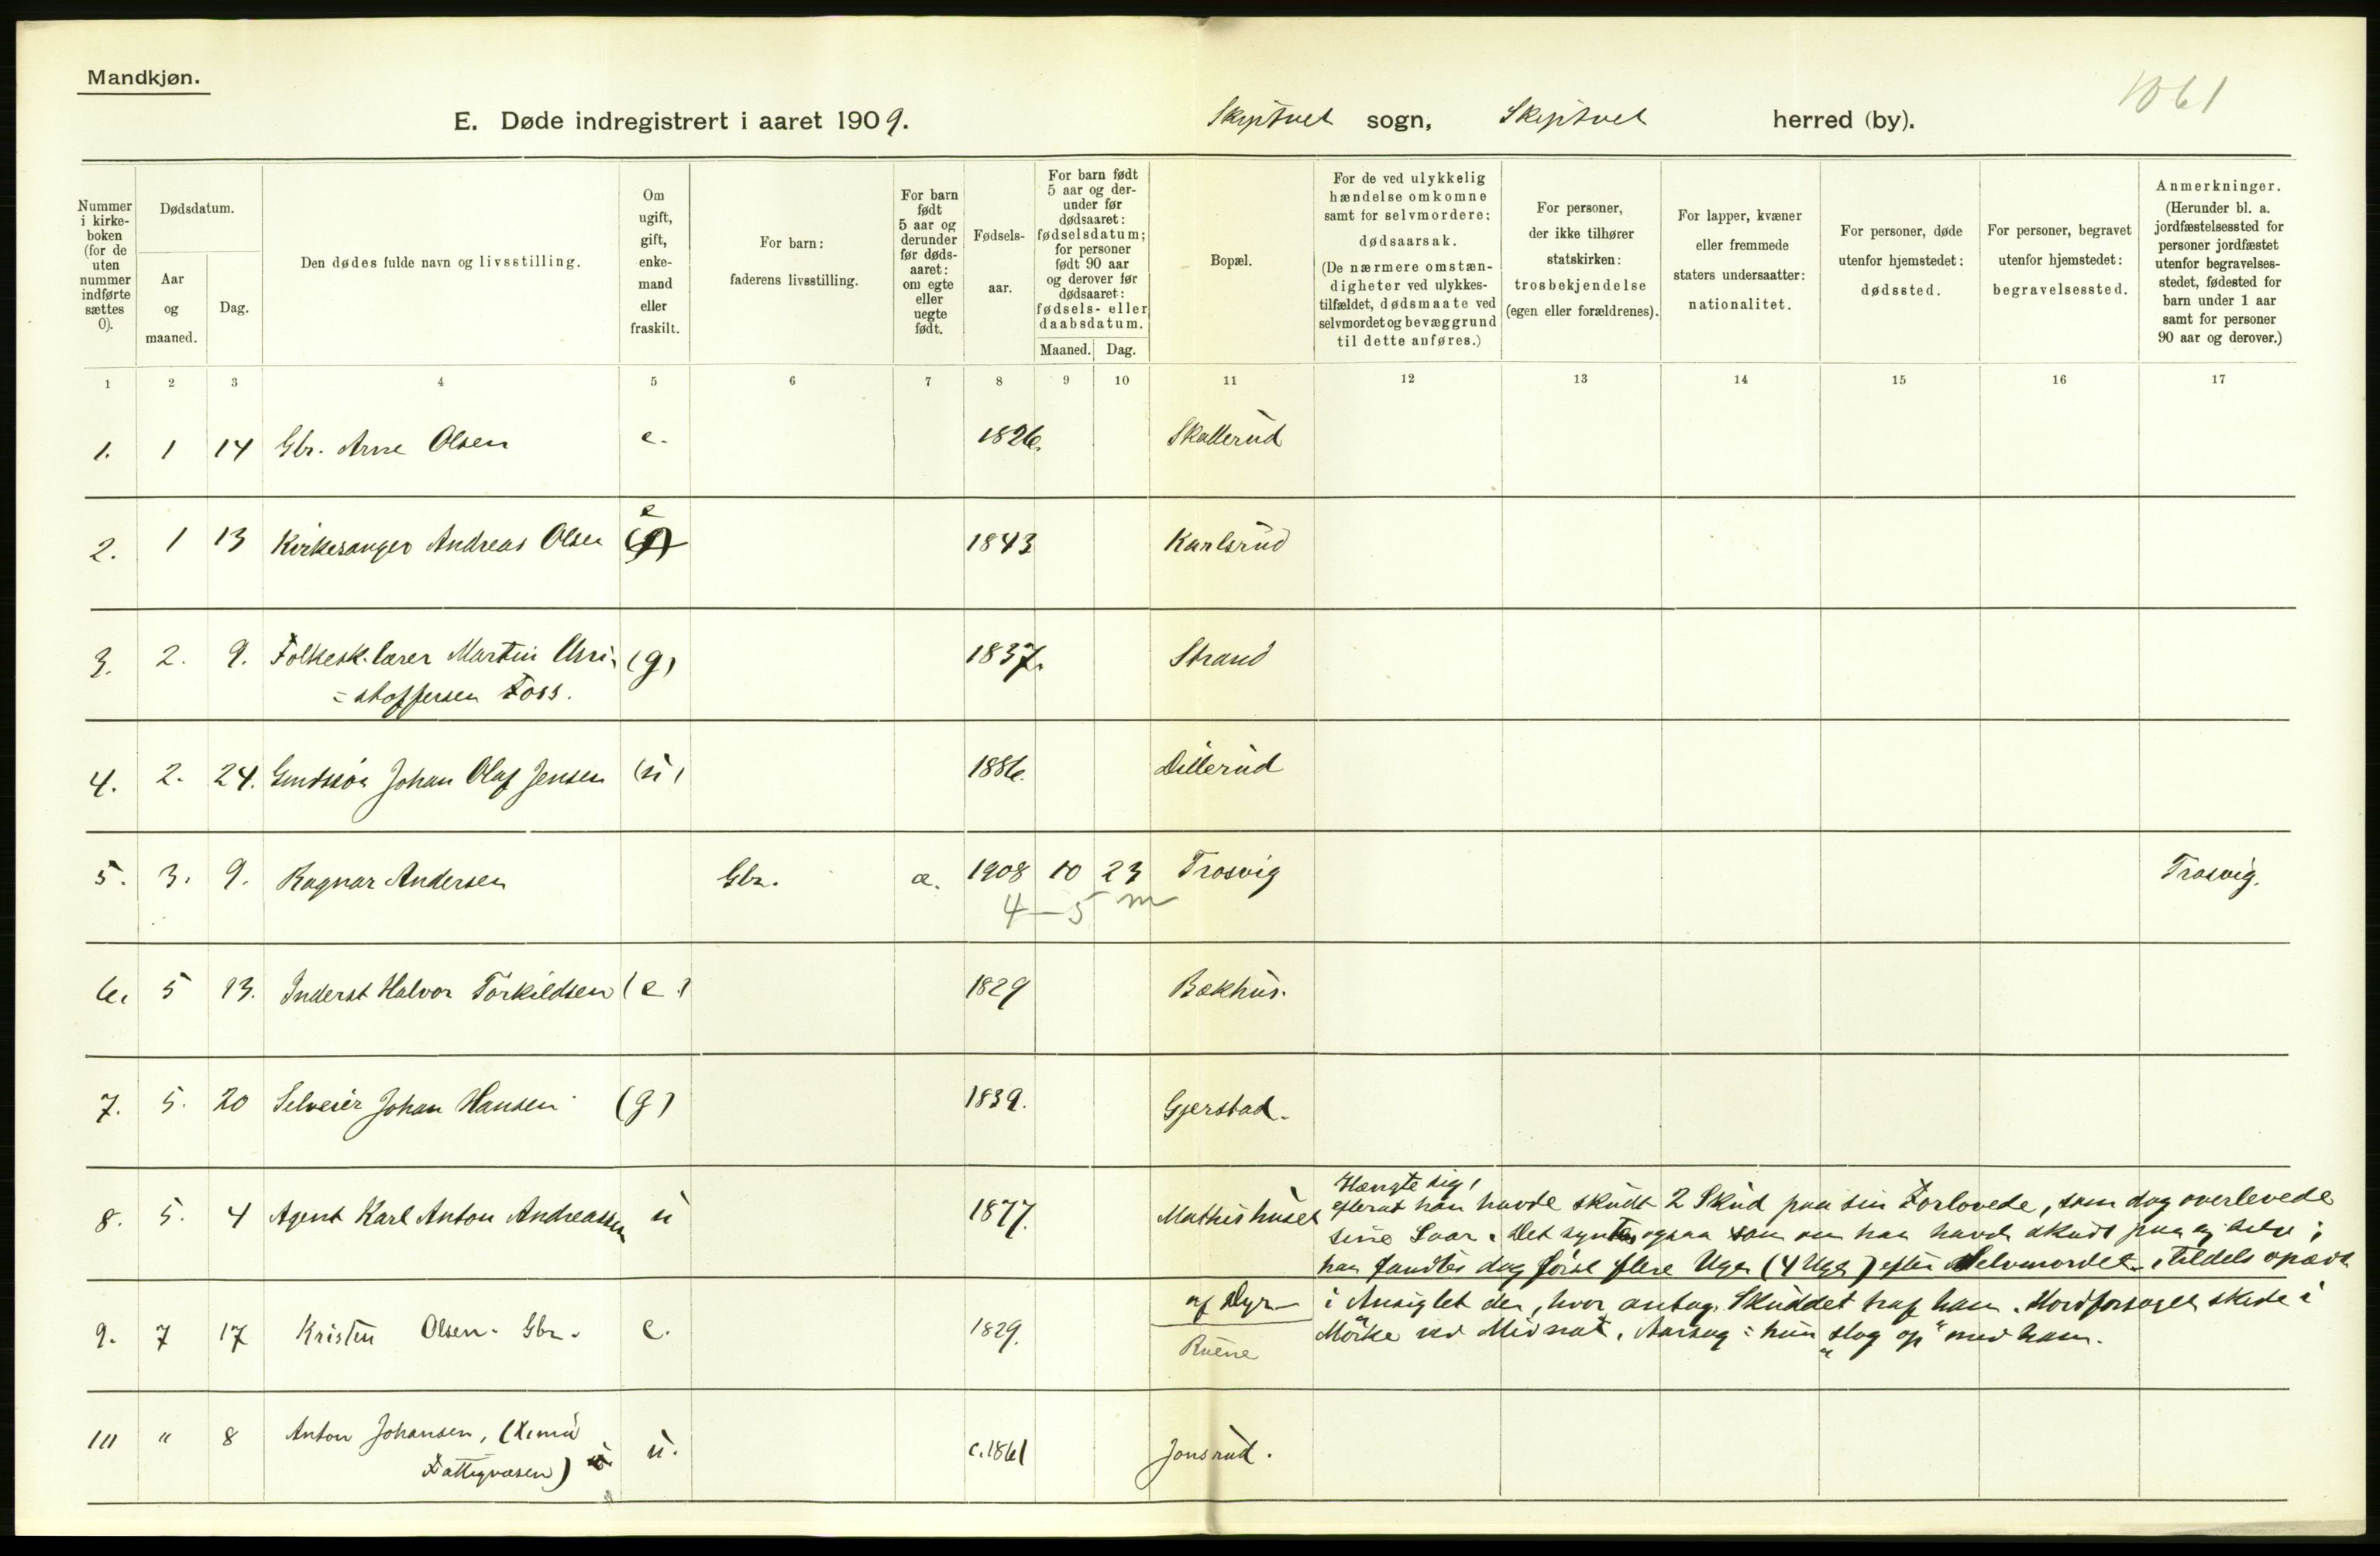 Mandkjøn.
1061
E. Døde indregistrert i aaret 1909. Skiptvet sogn, Skiptvet herred (by).
Nummer i kirke- boken (for de uten nummer indførte sættes 0).
Dødsdatum.
Aar og maaned.
Dag.
Den dødes fulde navn og livsstilling.
Om ugift, gift, enke- mand eller fraskilt.
For barn: faderens livsstilling.
For barn født 5 aar og derunder før døds- aaret: om egte eller uegte født.
Fødsels- aar.
For barn født 5 aar og der- under før dødsaaret: fødselsdatum; for personer født 90 aar og derover før dødsaaret: fødsels- eller daabsdatum.
Maaned. Dag.
Bopæl.
For de ved ulykkelig hændelse omkomne samt for selvmordere: dødsaarsak. (De nærmere omstæn- digheter ved ulykkes- tilfældet, dødsmaate ved selvmordet og bevæggrund til dette anføres.)
For personer, der ikke tilhører statskirken: trosbekjendelse (egen eller forældrenes).
For lapper, kvæner eller fremmede staters undersaatter: nationalitet.
For personer, døde utenfor hjemstedet: dødssted.
For personer, begravet utenfor hjemstedet: begravelsessted.
Anmerkninger. (Herunder bl. a. jordfæstelsessted for personer jordfæstet utenfor begravelses- stedet, fødested for barn under 1 aar samt for personer 90 aar og derover.)
1 2 3 4 5 6 7 8 9 10 11 12 13 14 15 16 17
1. 1 14 Gbr. Arne Olsen e. 1826. Skallerud
2. 1 13 Kirkesanger Andreas Olsen e 1843 Karlsrud
3. 2. 9. Folkesk. lærer Martin Chri- (g) 1837. Strand
= stoffersen Foss.
4. 2. 24. Gmdssøn Johan Olaf Jensen (u) 1886. Dillerud
5. 3. 9. Ragnar Andersen Gbr. æ. 1908 10 23 Trosvig Trosvig.
4-5 m
6. 5 13. Inderst Halvor Torkildsen (e.) 1829 Bækhus.
7. 5. 20 Selveier Johan Hansen (g) 1839. Gjerstad.
8. 5. 4 Agent Karl Anton Andreassen u 1877. Mathishuset
Hængte sig,
efterat han havde skudt 2 Skud paa sin Forlovede, som dog overlevede
sine Saar. Det syntes ogsaa som om han havde skudt paa sig selv;
han fandtes dog først flere Uger (4 Uger) efter Selvmordet, tildels opædt
af Dyr i Ansigtet der, hvor antag. Skuddet traf ham. Mordforsøget skede i
Mørke ved Midnat. Aarsag: hun „slog op" med ham.
9. 7 17 Kristen Olsen. Gbr. e. 1829. Ruene
10 " 8 Anton Johansen, u. c. 1861 Jonsrud.
Fattigvæsen)